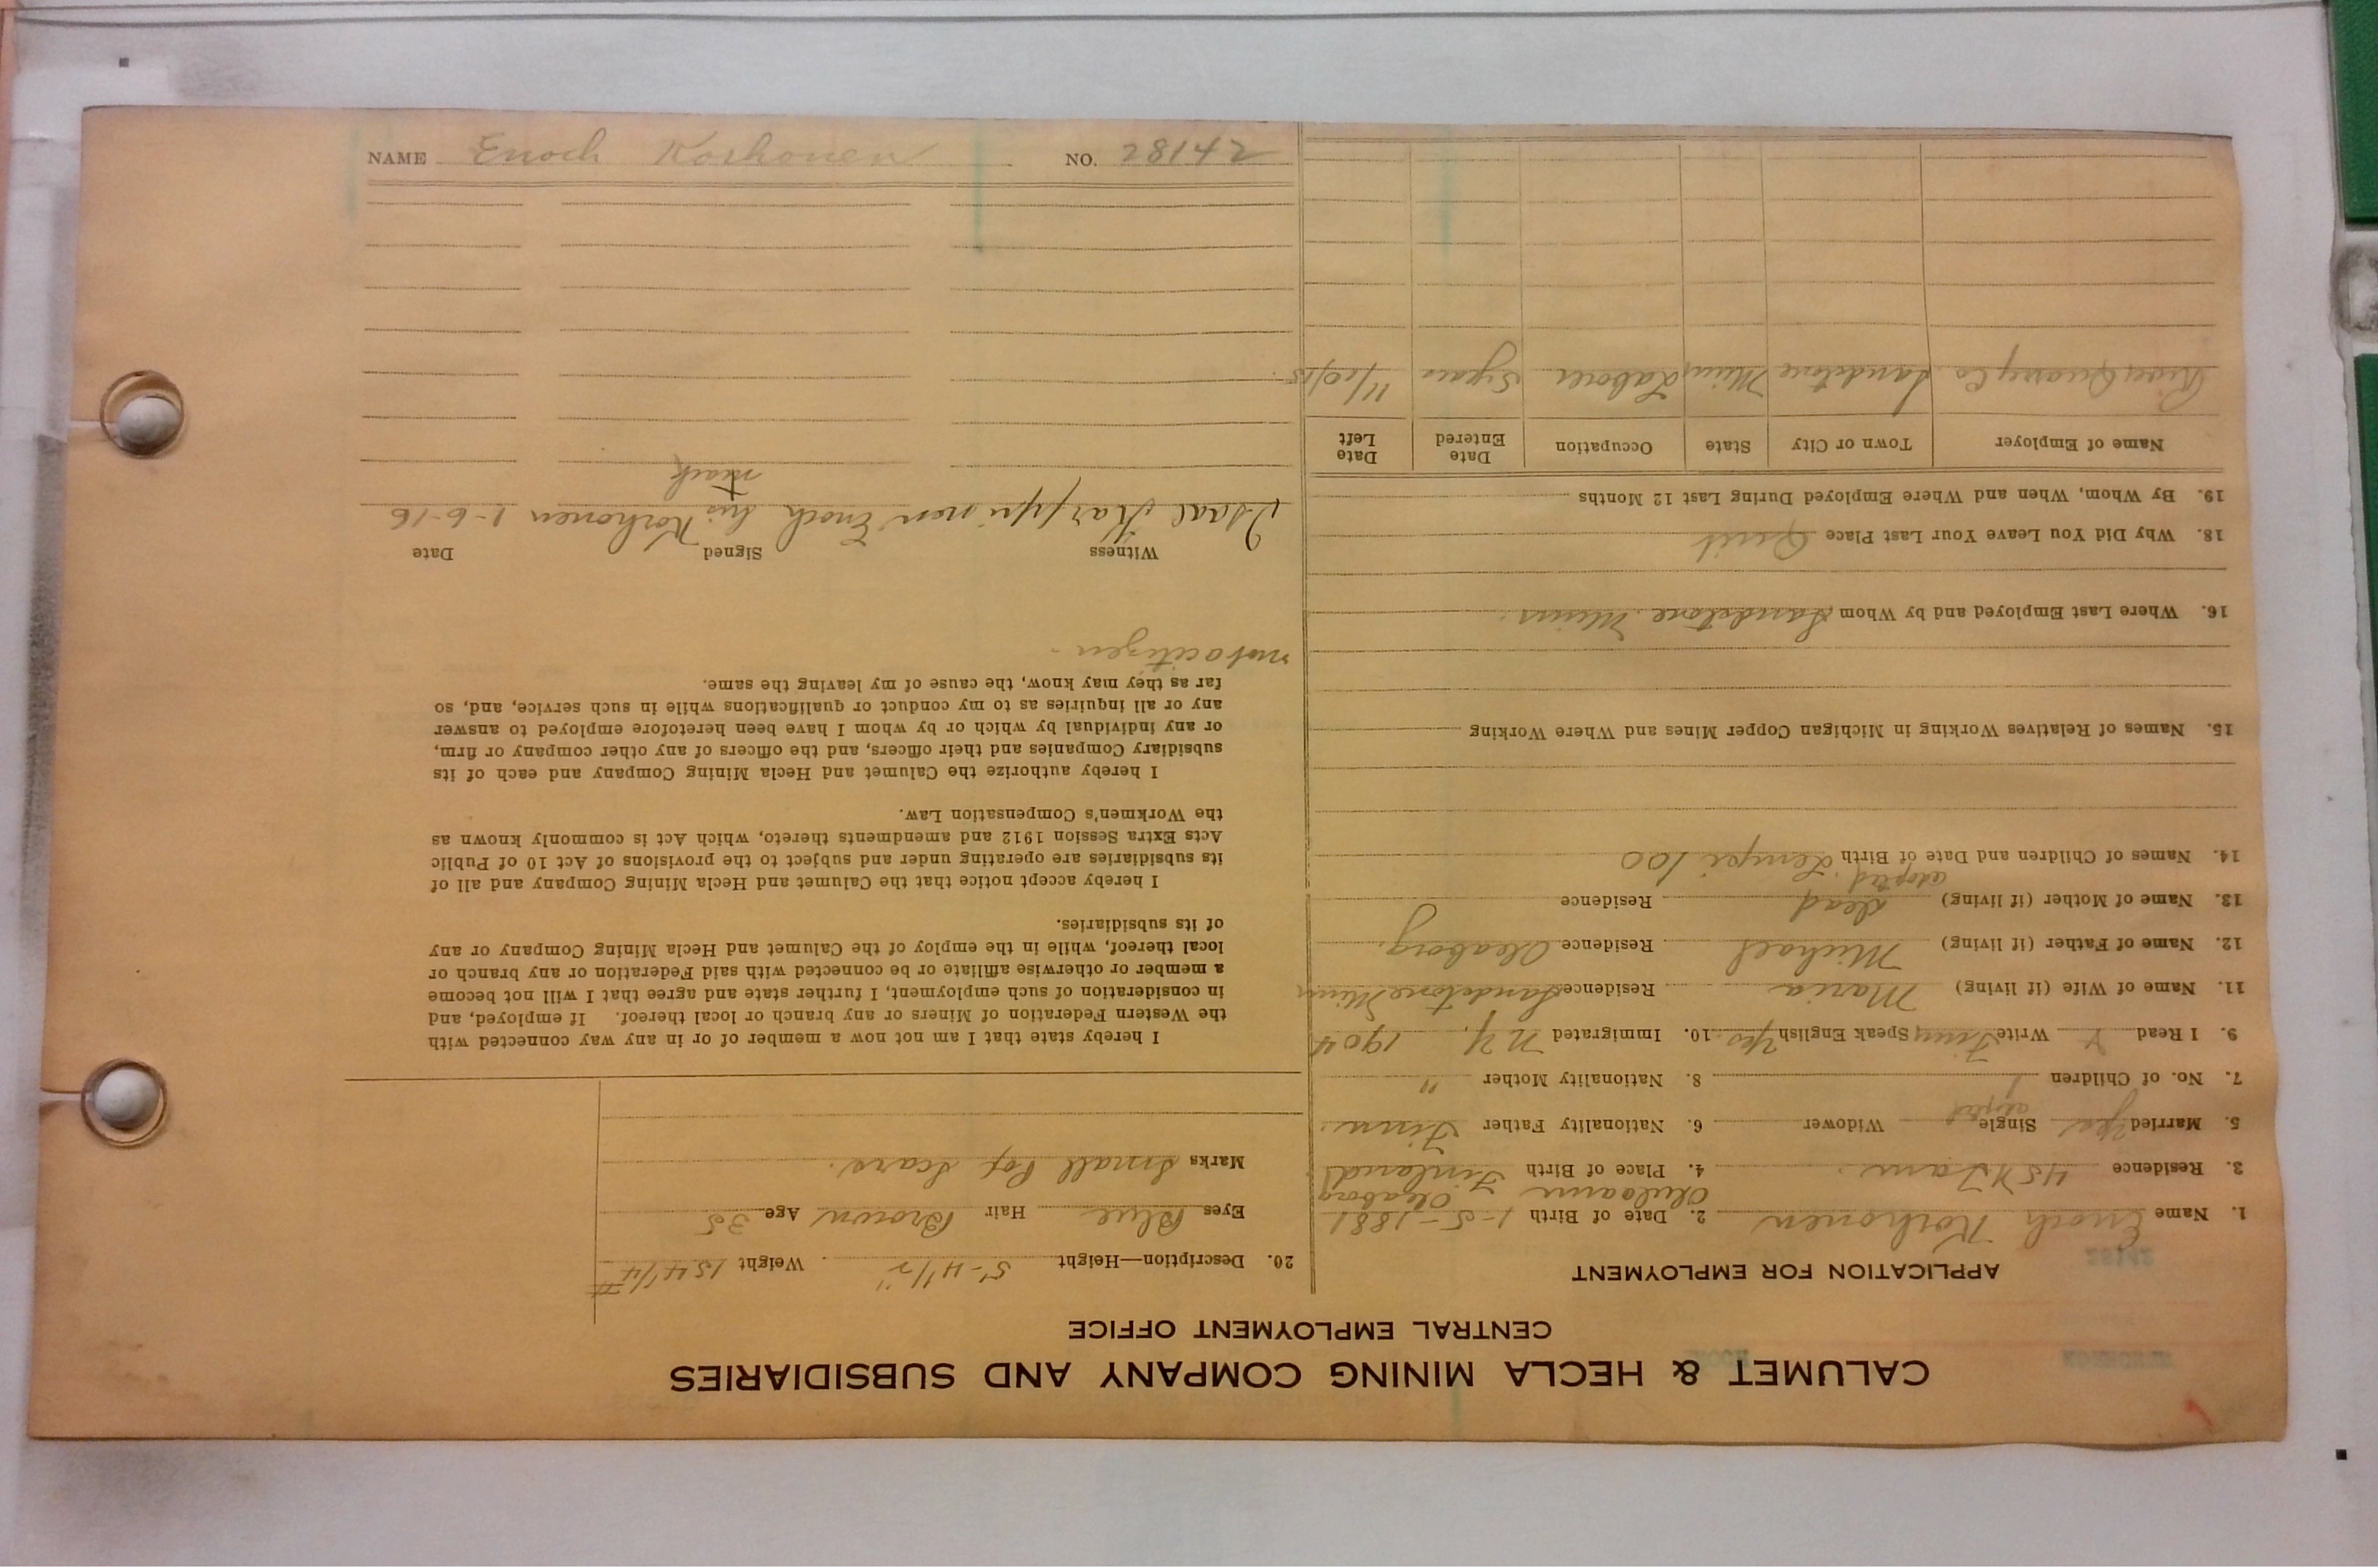 CALUMET & HECLA MINING COMPANY AND SUBSIDIARIES
CENTRAL EMPLOYMENT OFFICE
APPLICATION FOR EMPLOYMENT
1. Name Enoch Korhonen 2. Date of Birth 1-5-1881
3. Residence 45 4. Place of Birth Finland
5. Married Yes Single Widower 6. Nationality Father Finn.
adopted
7. No. of Children 1 8. Nationality Mother "
9. I Read Write Finn Speak English Yes 10. Immigrated N.Y. 1904
11. Name of Wife (if living) Maria Residence Sandstone Minn
12. Name of Father (if living) Michael Residence Oleaborg.
13. Name of Mother (if living) dead Residence
adopted
14. Names of Children and Date of Birth Lempi 100
15. Names of Relatives Working in Michigan Copper Mines and Where Working
16. Where Last Employed and by Whom Sandstone. Minn.
18. Why Did You Leave Your Last Place Quit
19. By Whom, When and Where Employed During Last 12 Months
Name of Employer Town or City State Occupation Date Entered Date Left
Quarry Co. Sandstone Minn Laborer 5 years 11/20/15
20. Description—Height 5'-4 1/2" Weight 154 1/4 #
Eyes Blue Hair Brown Age 35
Marks Small Pox Scars.
I hereby state that I am not now a member of or in any way connected with
the Western Federation of Miners or any branch or local thereof. If employed, and
in consideration of such employment, I further state and agree that I will not become
a member or otherwise affiliate or be connected with said Federation or any branch or
local thereof, while in the employ of the Calumet and Hecla Mining Company or any
of its subsidiaries.
I hereby accept notice that the Calumet and Hecla Mining Company and all of
its subsidiaries are operating under and subject to the provisions of Act 10 of Public
Acts Extra Session 1912 and amendments thereto, which Act is commonly known as
the Workmen's Compensation Law.
I hereby authorize the Calumet and Hecla Mining Company and each of its
subsidiary Companies and their officers, and the officers of any other company or firm,
or any individual by which or by whom I have been heretofore employed to answer
any or all inquiries as to my conduct or qualifications while in such service, and, so
far as they may know, the cause of my leaving the same.
not a citizen -
Witness Signed Date
Isaac Karppinen Enoch his Korhonen 1-6-16
mark
NAME Enoch Korhonen NO. 28142